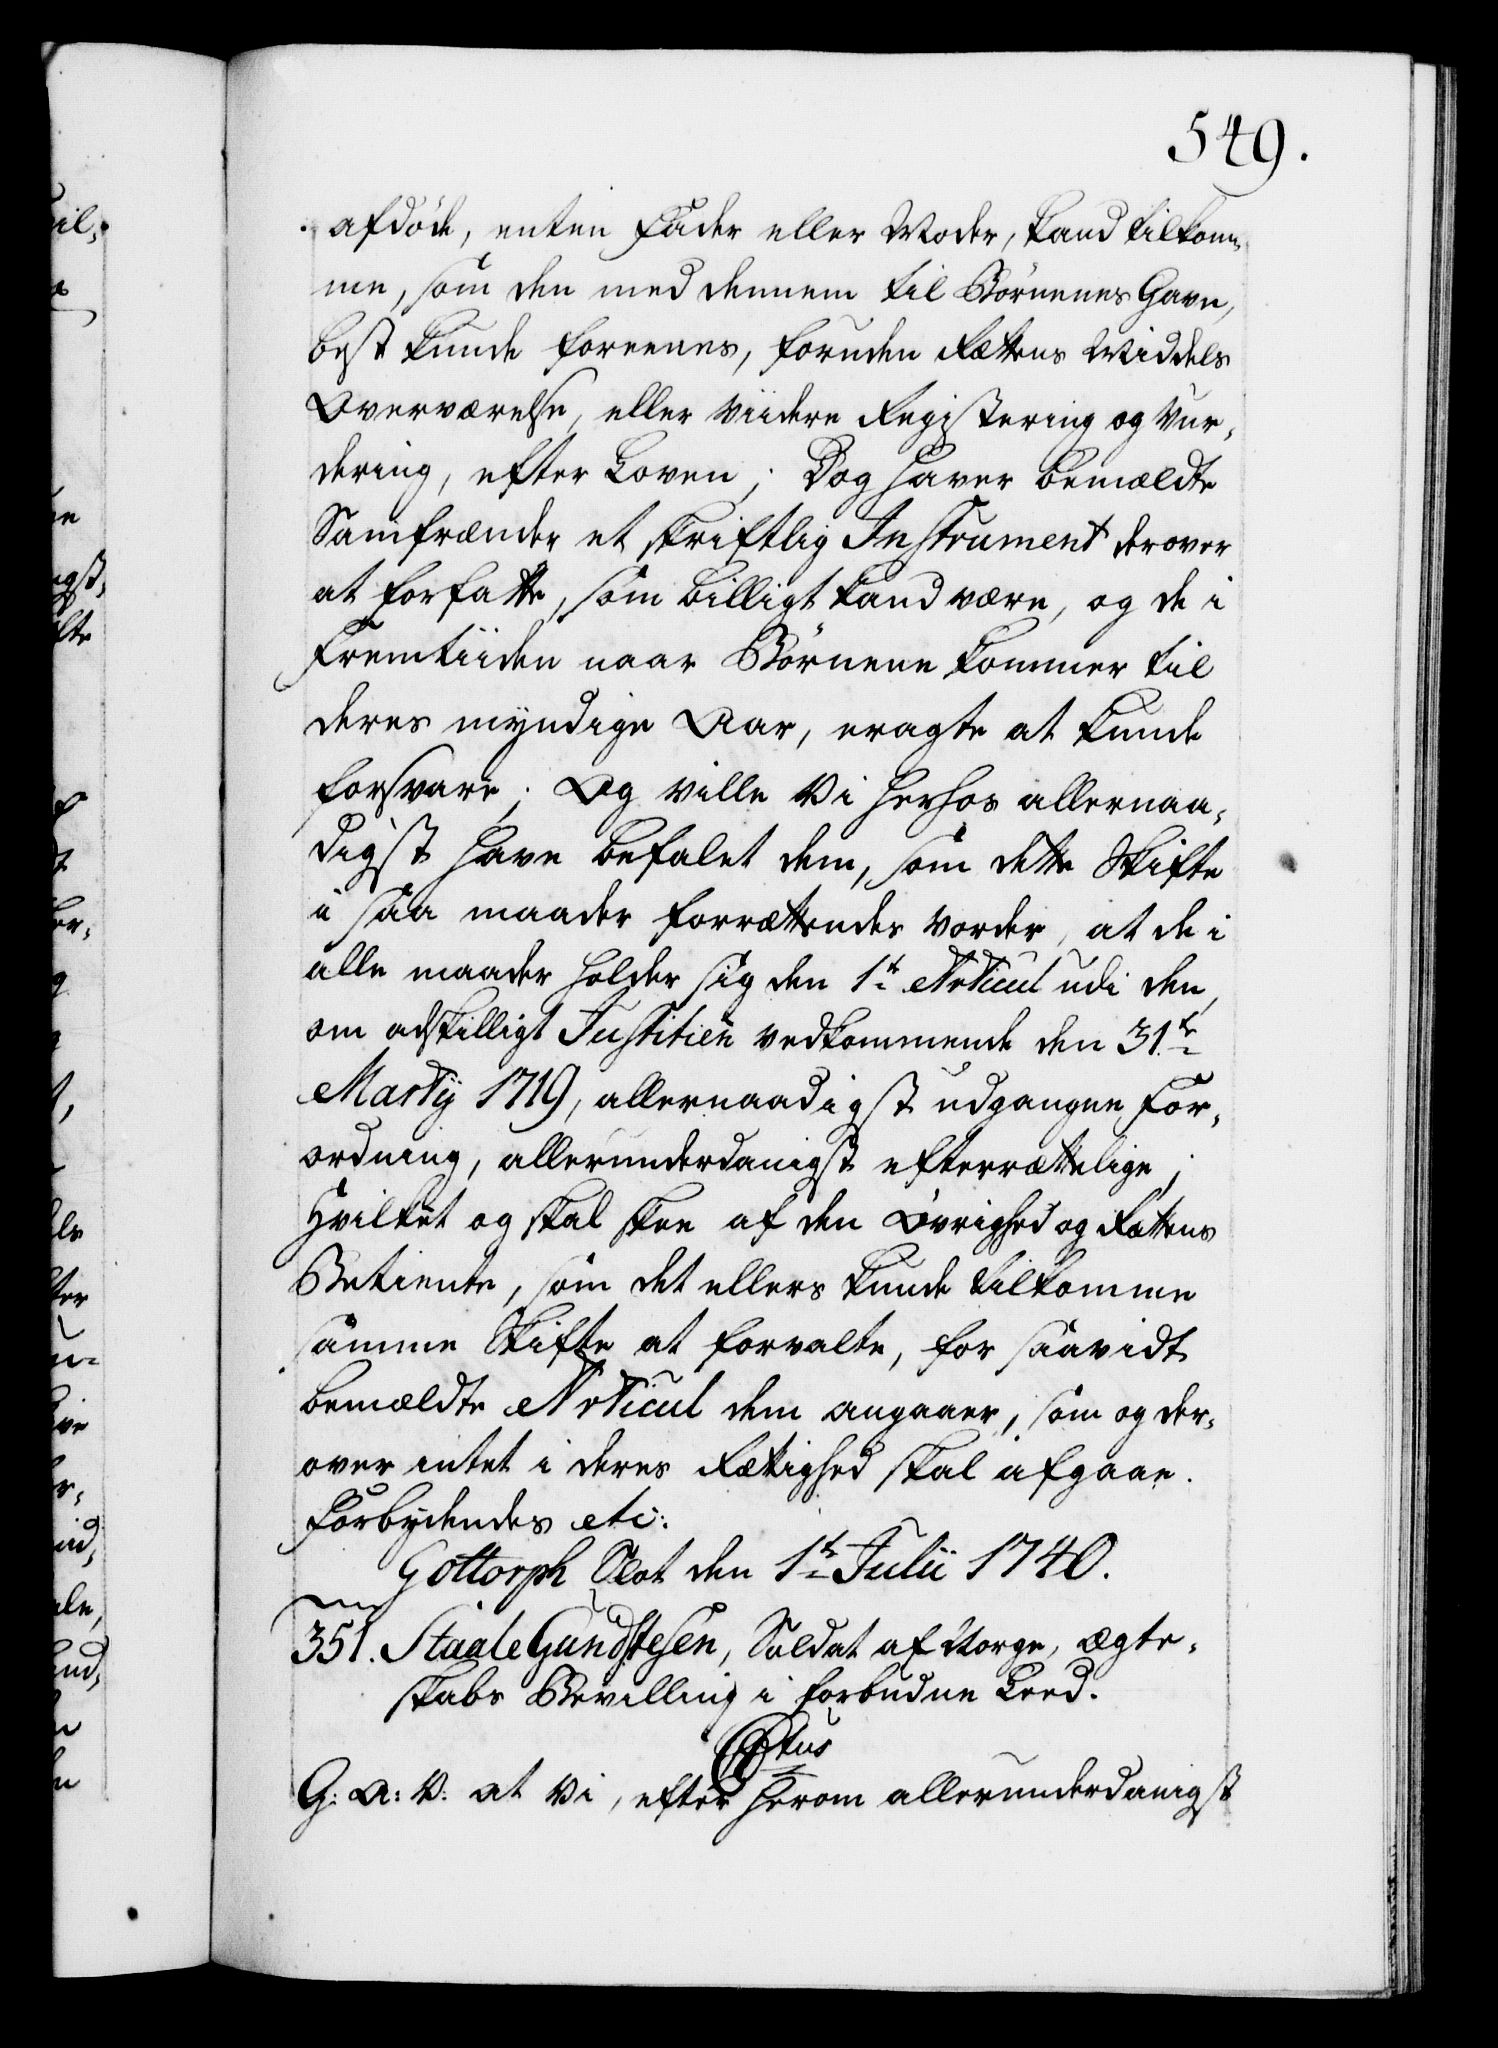 549.
afdöde, enten Fader eller Moder, kand tilkom-
me, som den med dennem til Börnenes Gavn,
best kunde foreenes, foruden Rættens Middels
Overværelse, eller viidere Registering og Vur-
dering, efter Loven; Dog haver bemældte
Samfrænder et skriftlig Instrument derover
at forfatte, som billigt kand være, og de i
Fremtiiden naar Börnene kommer til
deres myndige Aar, eragte at kunde
forsvare; Og ville Vi herhos allernaa-
digst have befalet dem, som dette Skifte
i saa maader forrættendes vorder, at de i
alle maader holder sig den 1te Articul udi den,
om adskilligt Justitien vedkommende den 31te
Martij 1719, allernaadigst udgangne For-
ordning, allerunderdanigst efterrættelige;
Hvilket og skal skee af den Øvrighed og Rettens
Betiente, som det ellers kunde tilkomme
samme Skifte at forvalte, for saavidt
bemældte Articul dem angaaer, som og der-
over intet i deres Rættighed skal afgaae.
Forbydendes etc:
Gottorph Slot den 1te Julii 1740.
351. Staale Gundstesen, Soldat af Norge, Ægte-
skabs Bevilling i forbudne Leed.
G: A: V: at Vi, efter herom allerunderdanigst